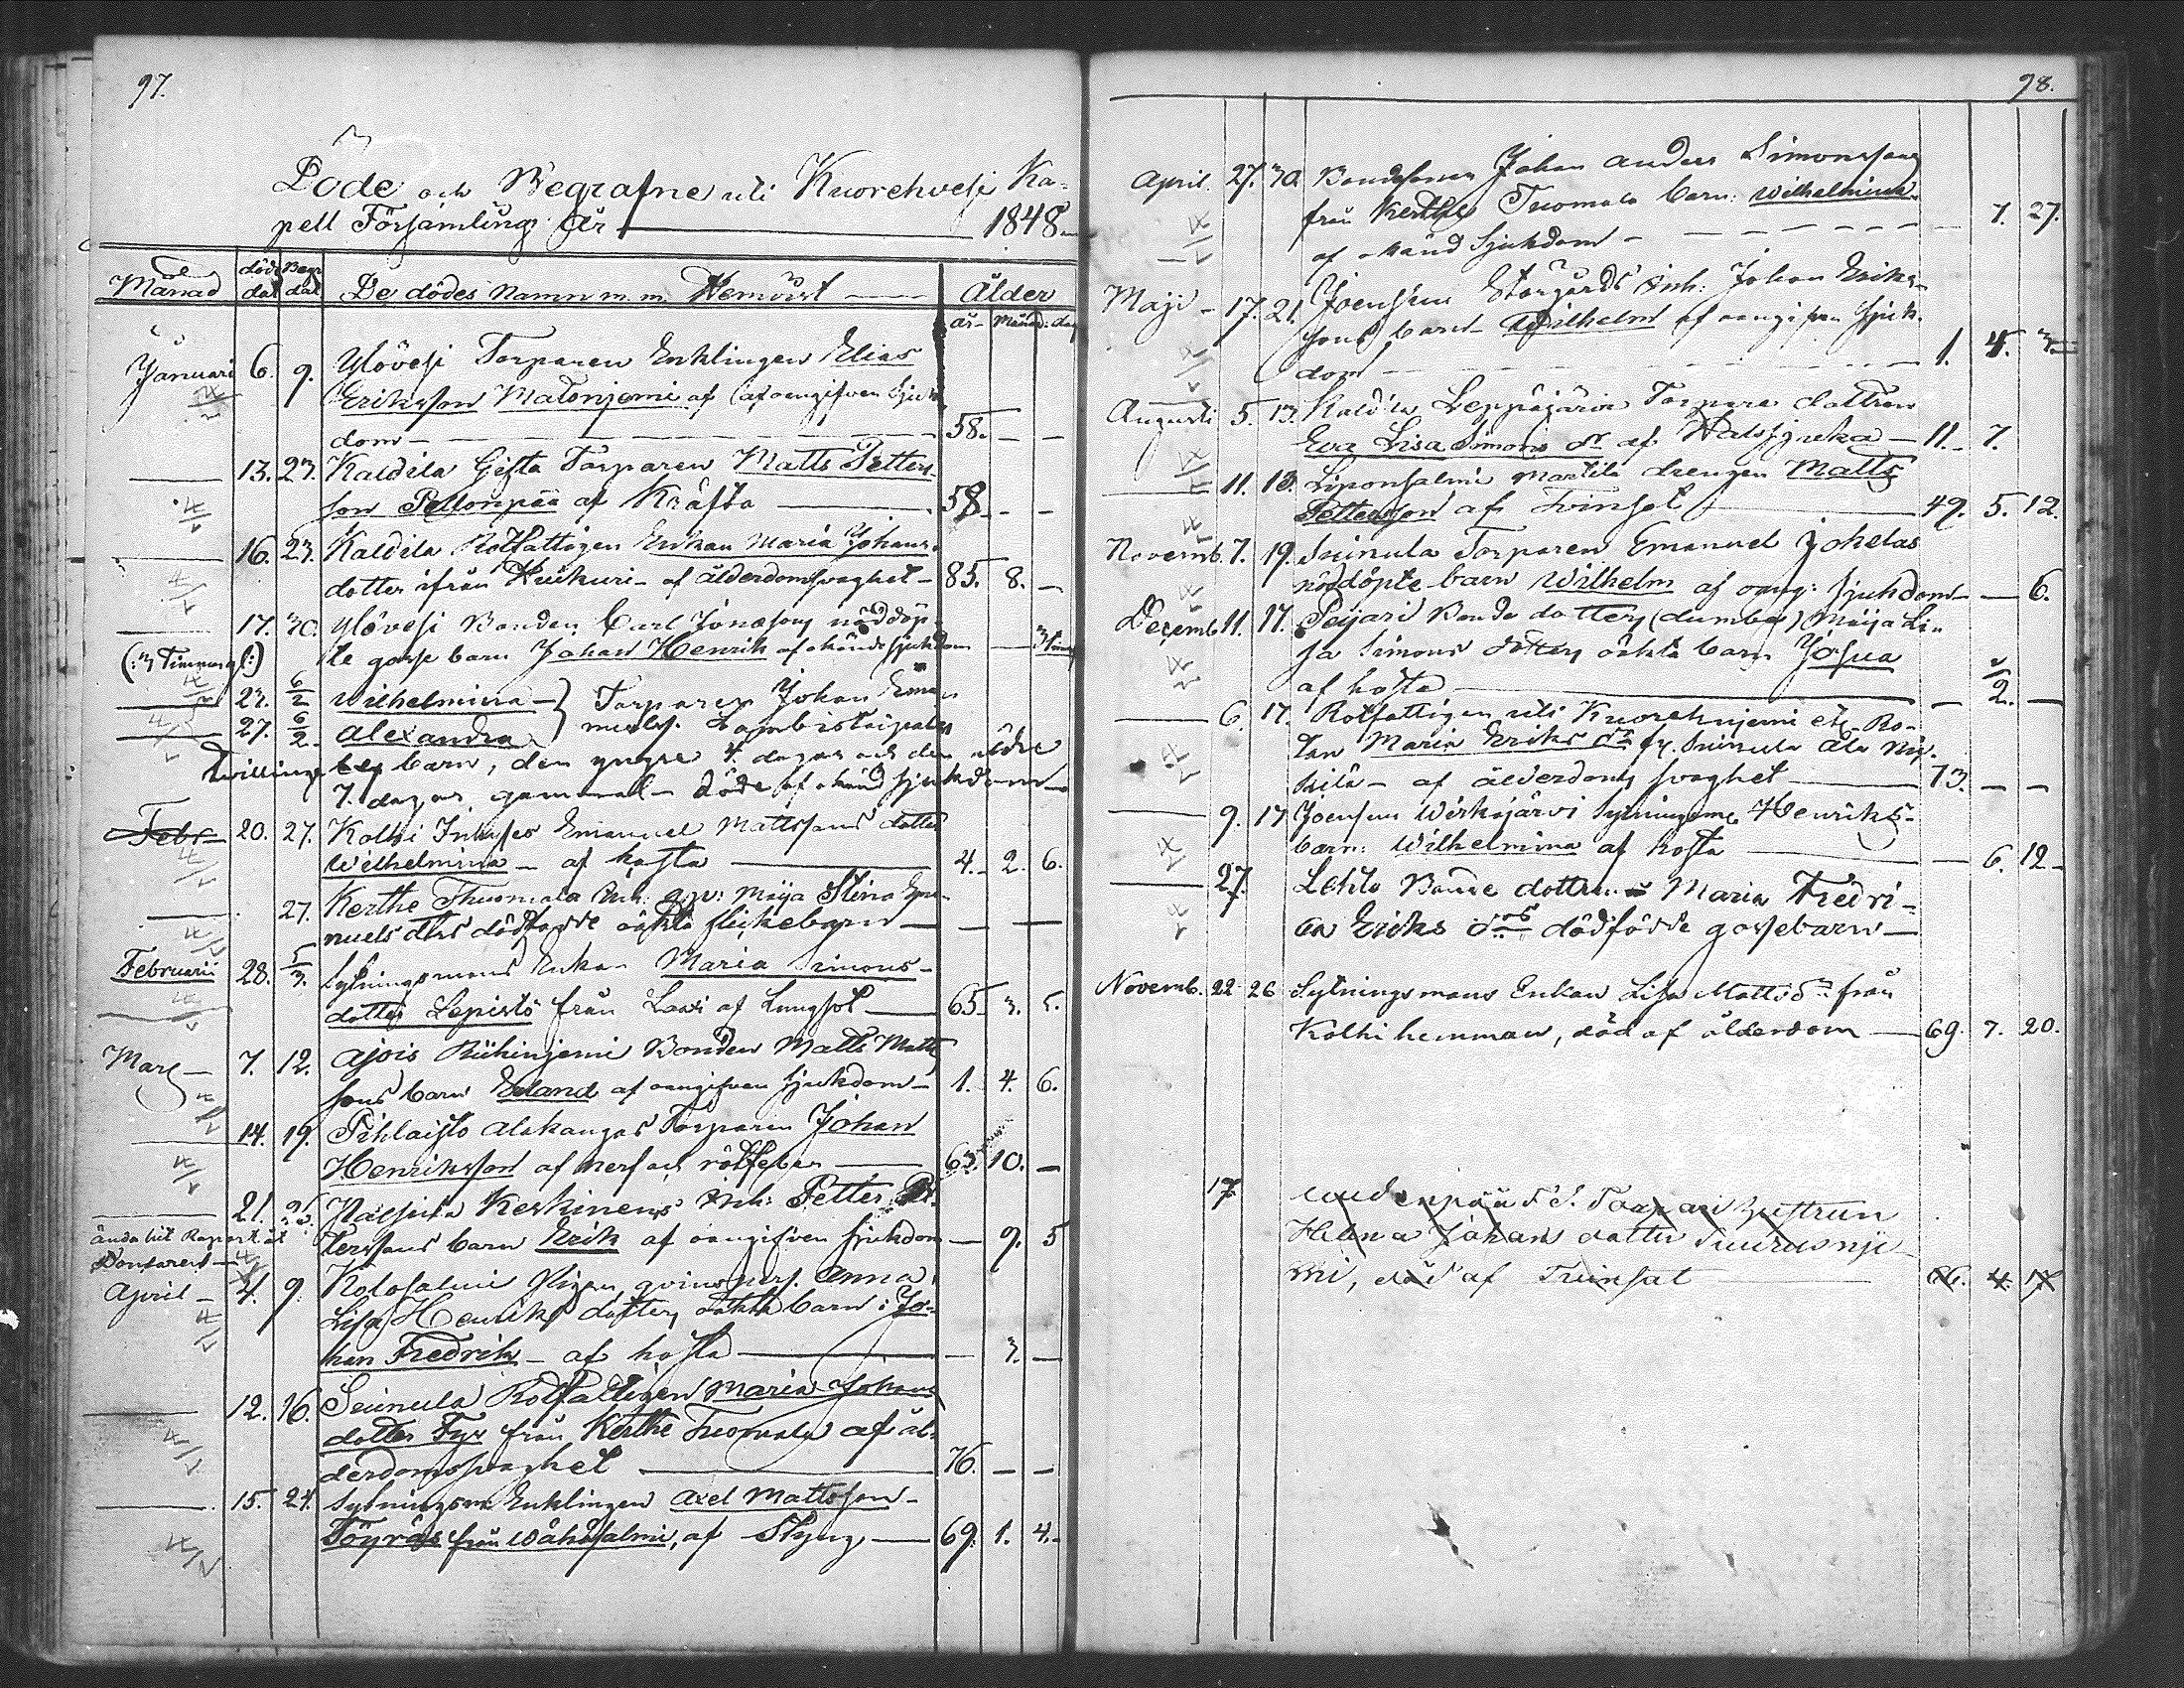 97.
Döde och Begrafne uti Kuorehvesi Ka=
pell Församling År 1848.
Månad döds dat Begr dat De dödes Namn m. m. Hemvist Ålder
år Månad: dag
Januari 6. 9. Ylövesi Torparen Enklingen Elias
Eriksson Matonjemi af oangifven Sjuk
dom 58. — —
13. 23. Kaldila Gifta Torparen Matts Petters
son Pellonpää af Kräfta 58. — —
16. 23. Kaldila Rotfattigen Enkan Maria Johans
dotter ifrån af ålderdomsvaghet 85. 8. —
17. 30. Ylövesi Bonden Carl Jonasons nöddöp
te gosse barn Johan Henrik af okänd sjukdom
(:3 Timmar:)
23. 6/2 Wilhelmina } Torparen Johan Eman
27. 6/2 Alexandra } uels.
Twillinge barn, den yngre 4. dagar och den äldre
7. dagar gammal döde af okänd sjukdom
Febr 20. 27. Kolhi Emanuel Mattssons dotter
Wilhelmina af hosta 4. 2. 6.
27. Kerthe Thuomala Inh: qv: Maja Stina Ema
nuels dtrs dödfödde oäkta flickebarn
Februarii 28. 5/3. Sytningsmans Enkan Maria Simons
dotter Lepistö från af Lungsot 65. 3. 5.
Mars 7. 12. Ajois Riihinjemi Bonden Matts Matts
sons barn Erland af oangifven sjukdom 1. 4. 6.
14. 19. Pihlaisto Alakangas Torparen Johan
Henriksson af nerf och rötfeber 63. 10. —
21. 26. Keskinens Inh: Petter Pet
terssons barn Erik af oangifven sjukdom — 9. 5
ända hit Raport åt
April 4. 9. Kolosalmi qvinspers. Anna
Lisa Henriks dotters oäkta barn: Jo=
han Fredrik af hosta — 3. —
12. 16. Suinula Rotfattigen Maria Johans
dotter Fyr från Kerthe Tuomala af ål
derdomsvaghet 76. — —
15. 24. Sytningsm Enklingen Axel Mattsson
Töyräs från Wåhäsalmi, af Styng 69. 1. 4.
98.
April. 27. 30. Bondesonen Johan Anders Simonssons
från Kerthe Tuomala barn: Wilhelmina
af okänd Sjukdom 7. 27.
Maji 17. 21. Joensuu Storgårds Inh: Johan Eriks
sons barn Wilhelm af oangifven sjuk
dom 1. 4. 3.
Augusti 5. 13. Kaldila Leppäjärvi Torpare dottren
Eva Lisa Simons dr af Halssjuka 11. 7.
11. 13. Liponsalmi Martila drengen Matts
Pettersson af Tvinsot 49. 5. 12.
Novemb. 7. 19. Suinula Torparen Emanuel Johelas
nöddöpte barn Wilhelm af oang: sjukdom — 6.
Decemb 11. 17. Peijari Bonde dotters (dumbes) Maija Li=
sa Simons dotters oäkta barn Josua
af hosta — 2. —
6. 17. Rotfattigen uti Kuorehnjemi
Maria Eriks dr fr. Suinula Ala
af ålderdoms svaghet 73. — —
9. 17. Joensuu Wirkajärvi Sytningsm Henriks
barn: Wilhelmina af hosta — 6. 12
27. Lehto Bonde dottren Maria Fredri=
ca Eriks drs dödfödde gossebarn
Novemb. 22 26 Sytningsmans Enkan Lisa Matts dr från
Kolhi hemman, död af ålderdom 69. 7. 20.
17. Torpari hustrun
Helena Johans dotter
mi, död af Tvinsot 66. 4. 17